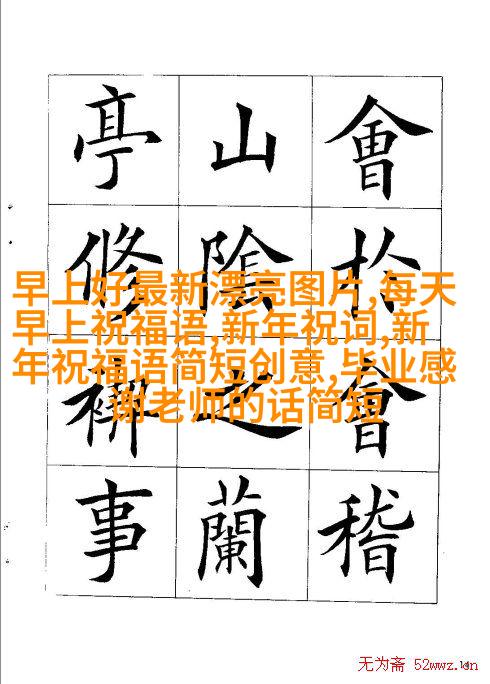 會扵會稽
山隂之蘭
亭修禊事
早上好最新漂亮图片,每天
早上祝福语,新年祝词,新
年祝福语简短创意,毕业感
谢老师的话简短
无为斋 52wwz.cn